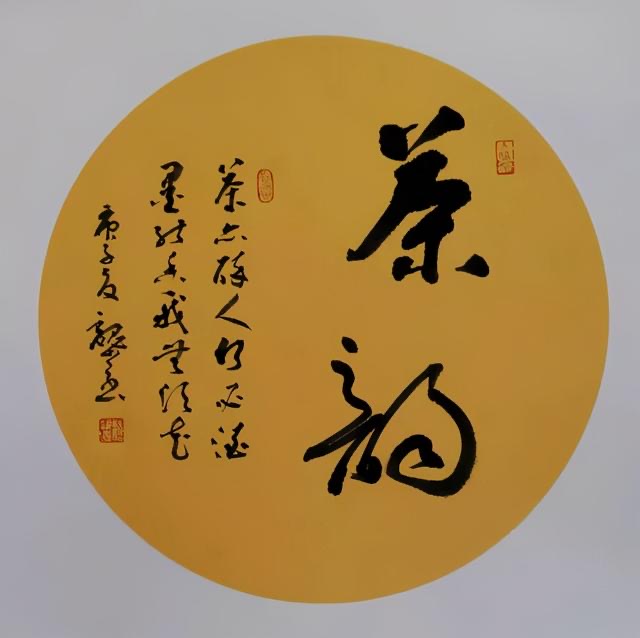 茶韵
茶亦醉人何必酒
墨能香我無須花
庚子夏